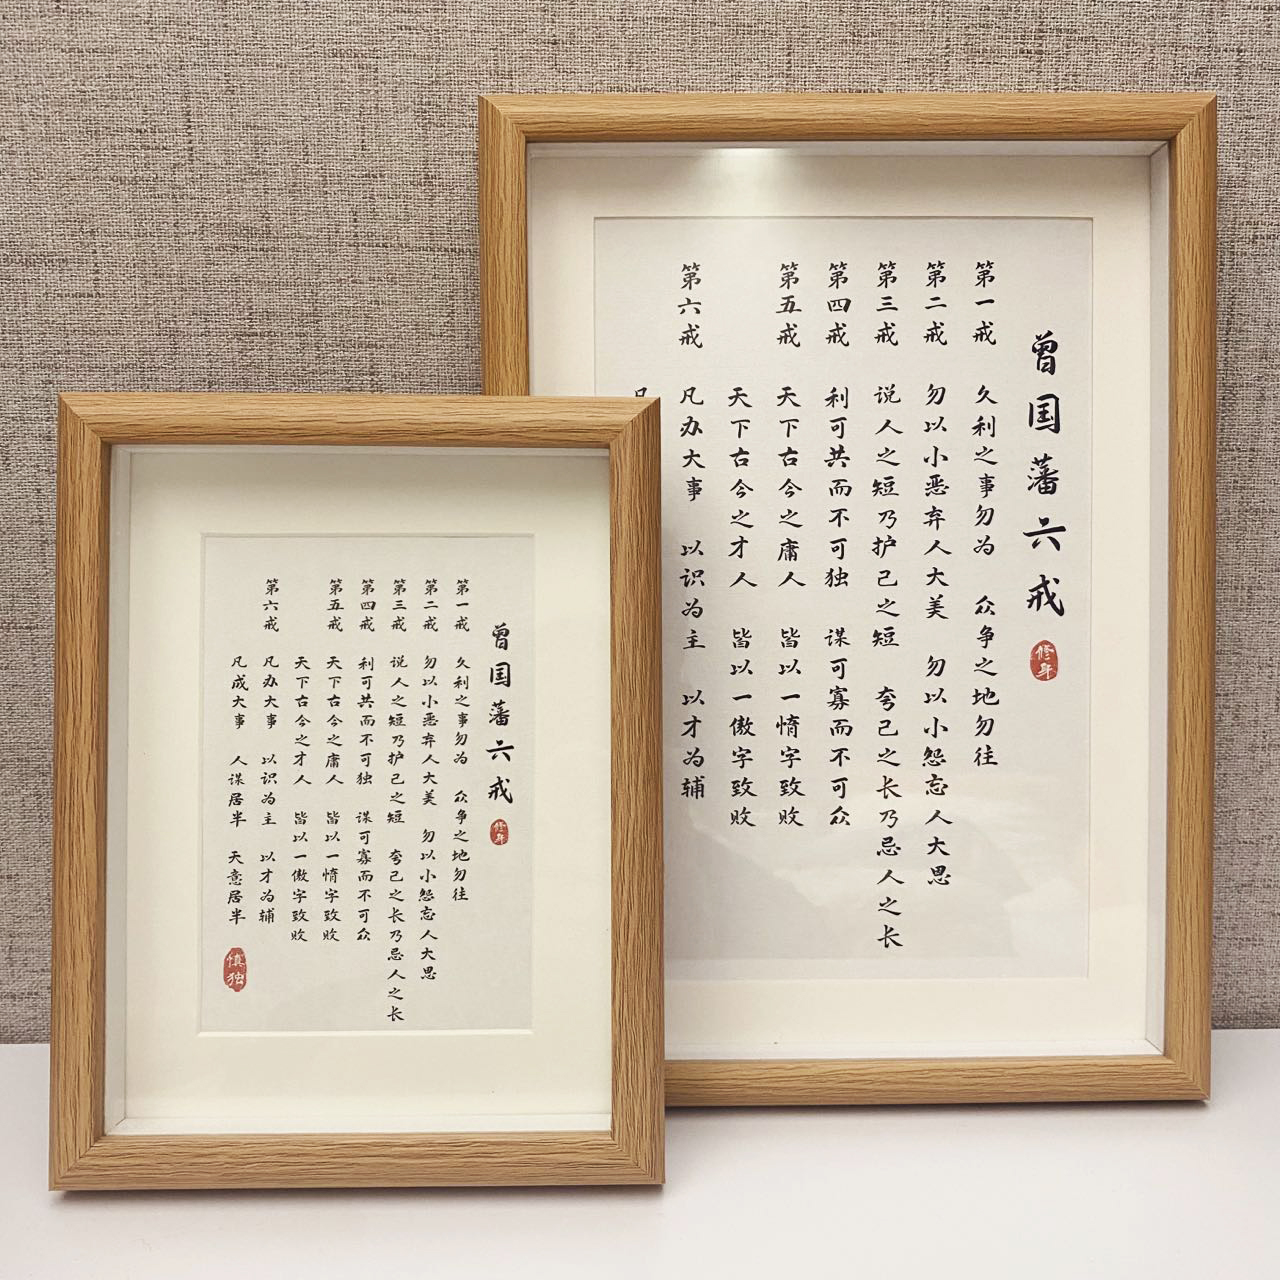 曾国藩六戒
修身
第一戒 久利之事勿为 众争之地勿往
第二戒 勿以小恶弃人大美 勿以小怨忘人大恩
第三戒 说人之短乃护己之短 夸己之长乃忌人之长
第四戒 利可共而不可独 谋可寡而不可众
第五戒 天下古今之庸人 皆以一惰字致败
天下古今之才人 皆以一傲字致败
第六戒 凡办大事 以识为主 以才为辅
曾国藩六戒
修身
第一戒 久利之事勿为 众争之地勿往
第二戒 勿以小恶弃人大美 勿以小怨忘人大恩
第三戒 说人之短乃护己之短 夸己之长乃忌人之长
第四戒 利可共而不可独 谋可寡而不可众
第五戒 天下古今之庸人 皆以一惰字致败
天下古今之才人 皆以一傲字致败
第六戒 凡办大事 以识为主 以才为辅
凡成大事 人谋居半 天意居半
慎独